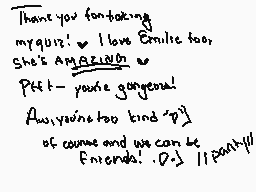 Thank you for taking
my quiz! ♥ I love Emilie too,
she's AMAZING ♥
Pfft- you're gorgeous!
Aw, you're too kind :'D
of course and we can be
friends! .D.J //party//